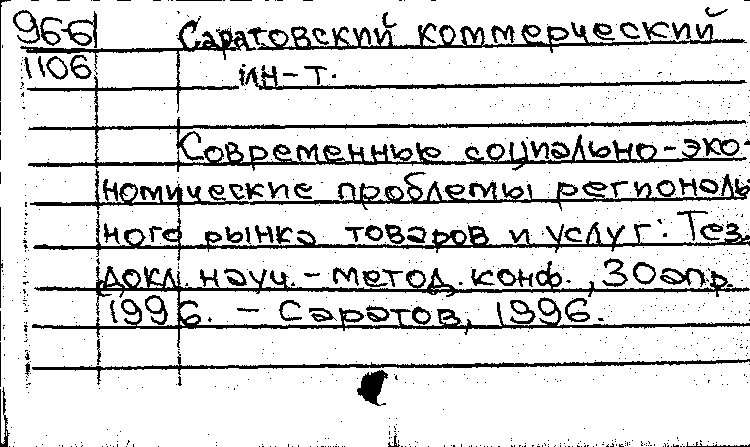 966 Саратовский коммерческий
1106 ин-т.
Современные социально-эко-
номические проблемы региональ
ного рынка товаров и услуг: Тез.
докл. науч.-метод. конф., 30 апр.
1996. - Саратов, 1996.